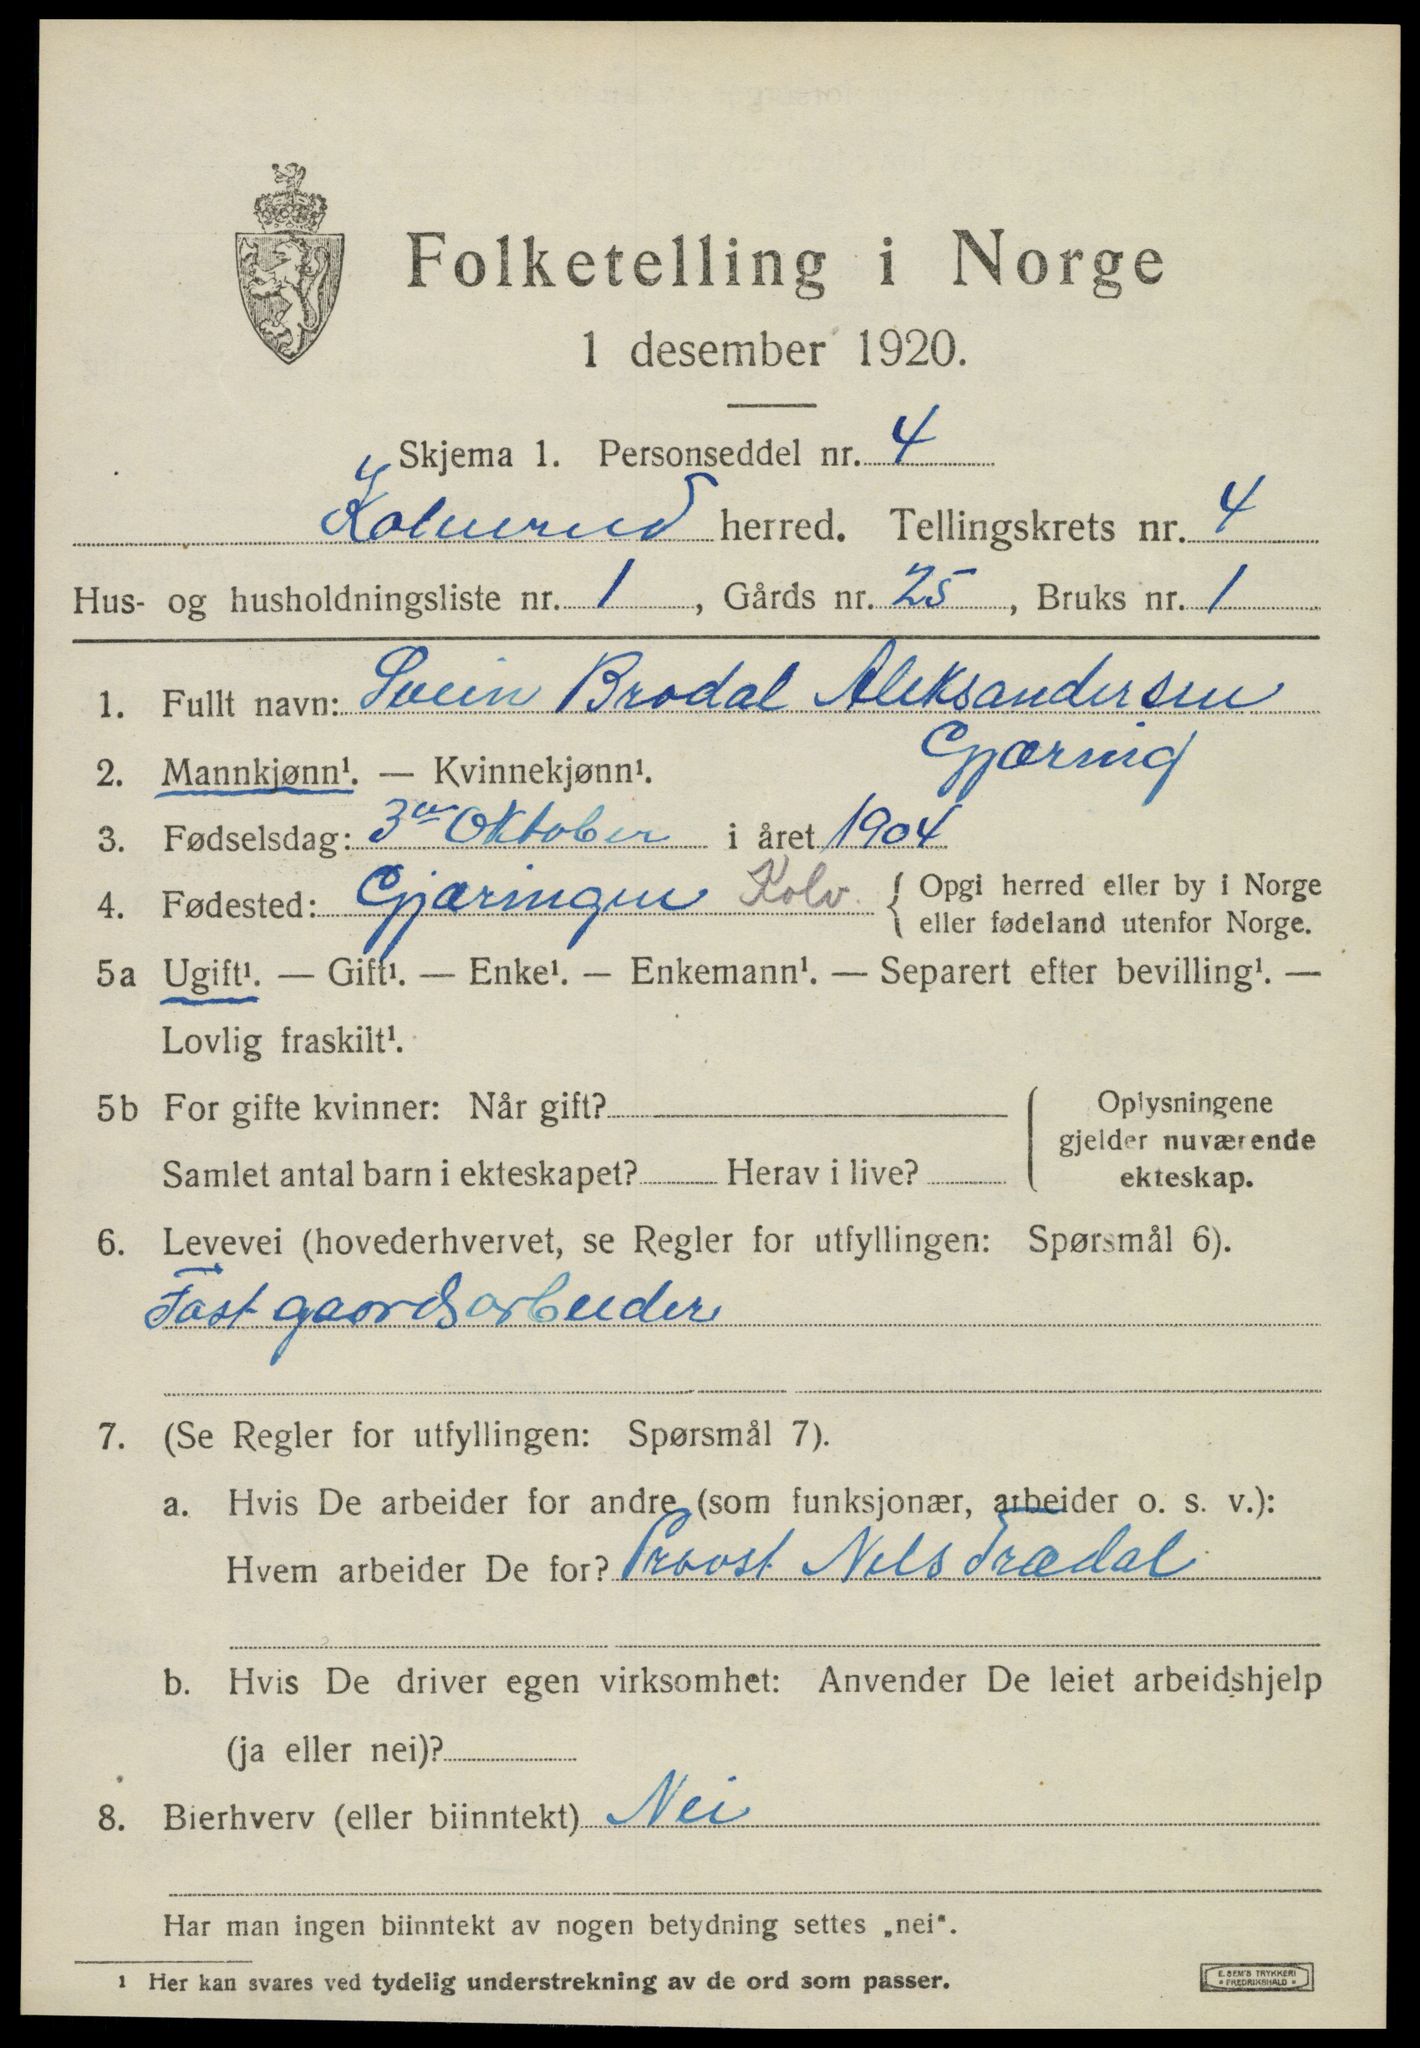 Folketelling i Norge
1 desember 1920.
Skjema 1. Personseddel nr. 4
Kolvereid herred. Tellingskrets nr. 4
Hus- og husholdningsliste nr. 1, Gårds nr. 25, Bruks nr. 1
1. Fullt navn: Svein Brodal Aleksandersen
Gjæring
2. Mannkjønn¹. — Kvinnekjønn¹.
3. Fødselsdag: 3die Oktober i året 1904
4. Fødested: Gjæringen Kolv. { Opgi herred eller by i Norge
eller fødeland utenfor Norge.
5a Ugift¹. — Gift¹. — Enke¹. — Enkemann¹. — Separert efter bevilling¹. —
Lovlig fraskilt¹.
5b For gifte kvinner: Når gift?
Samlet antal barn i ekteskapet? Herav i live?
Oplysningene
gjelder nuværende
ekteskap.
6. Levevei (hovederhvervet, se Regler for utfyllingen: Spørsmål 6).
Fast gaardsarbeider
7. (Se Regler for utfyllingen: Spørsmål 7).
a. Hvis De arbeider for andre (som funksjonær, arbeider o. s. v.):
Hvem arbeider De for? Provst Nils Trædal
b. Hvis De driver egen virksomhet: Anvender De leiet arbeidshjelp
(ja eller nei)?
8. Bierhverv (eller biinntekt) Nei
Har man ingen biinntekt av nogen betydning settes „nei“.
¹ Her kan svares ved tydelig understrekning av de ord som passer.
E. SEM'S TRYKKERI
• FREDRIKSHALD •